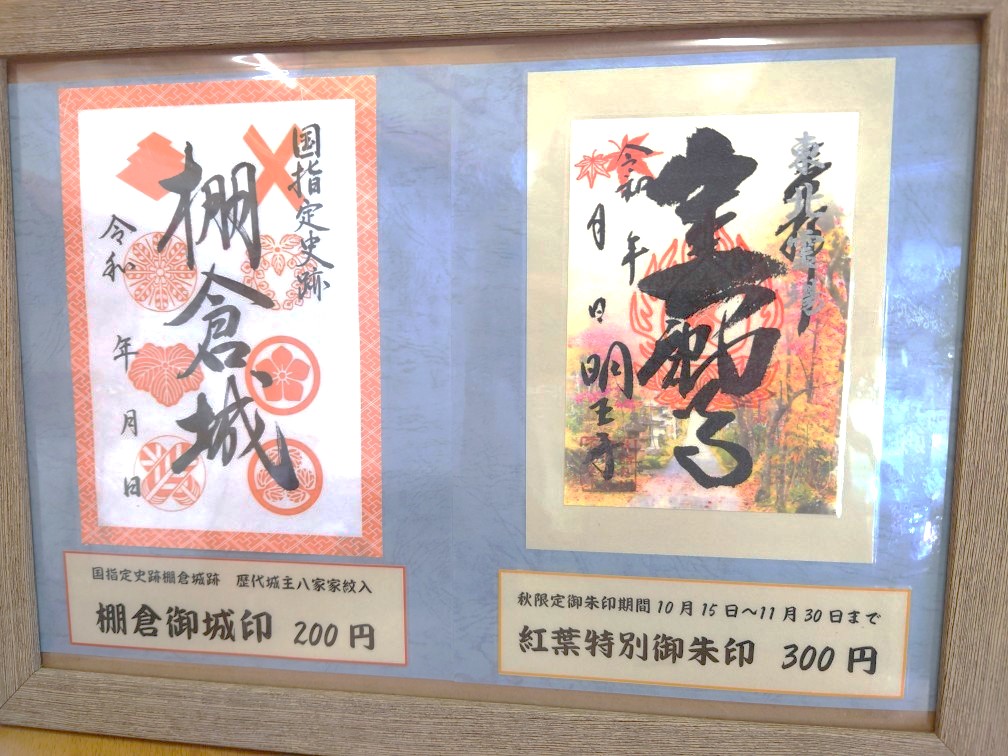 国指定史跡
棚倉城
令和
年
月
日
国指定史跡棚倉城跡 歴代城主八家家紋入
棚倉御城印 200円
令和
年
月
日
明王寺
秋限定御朱印期間10月15日～11月30日まで
紅葉特別御朱印 300円